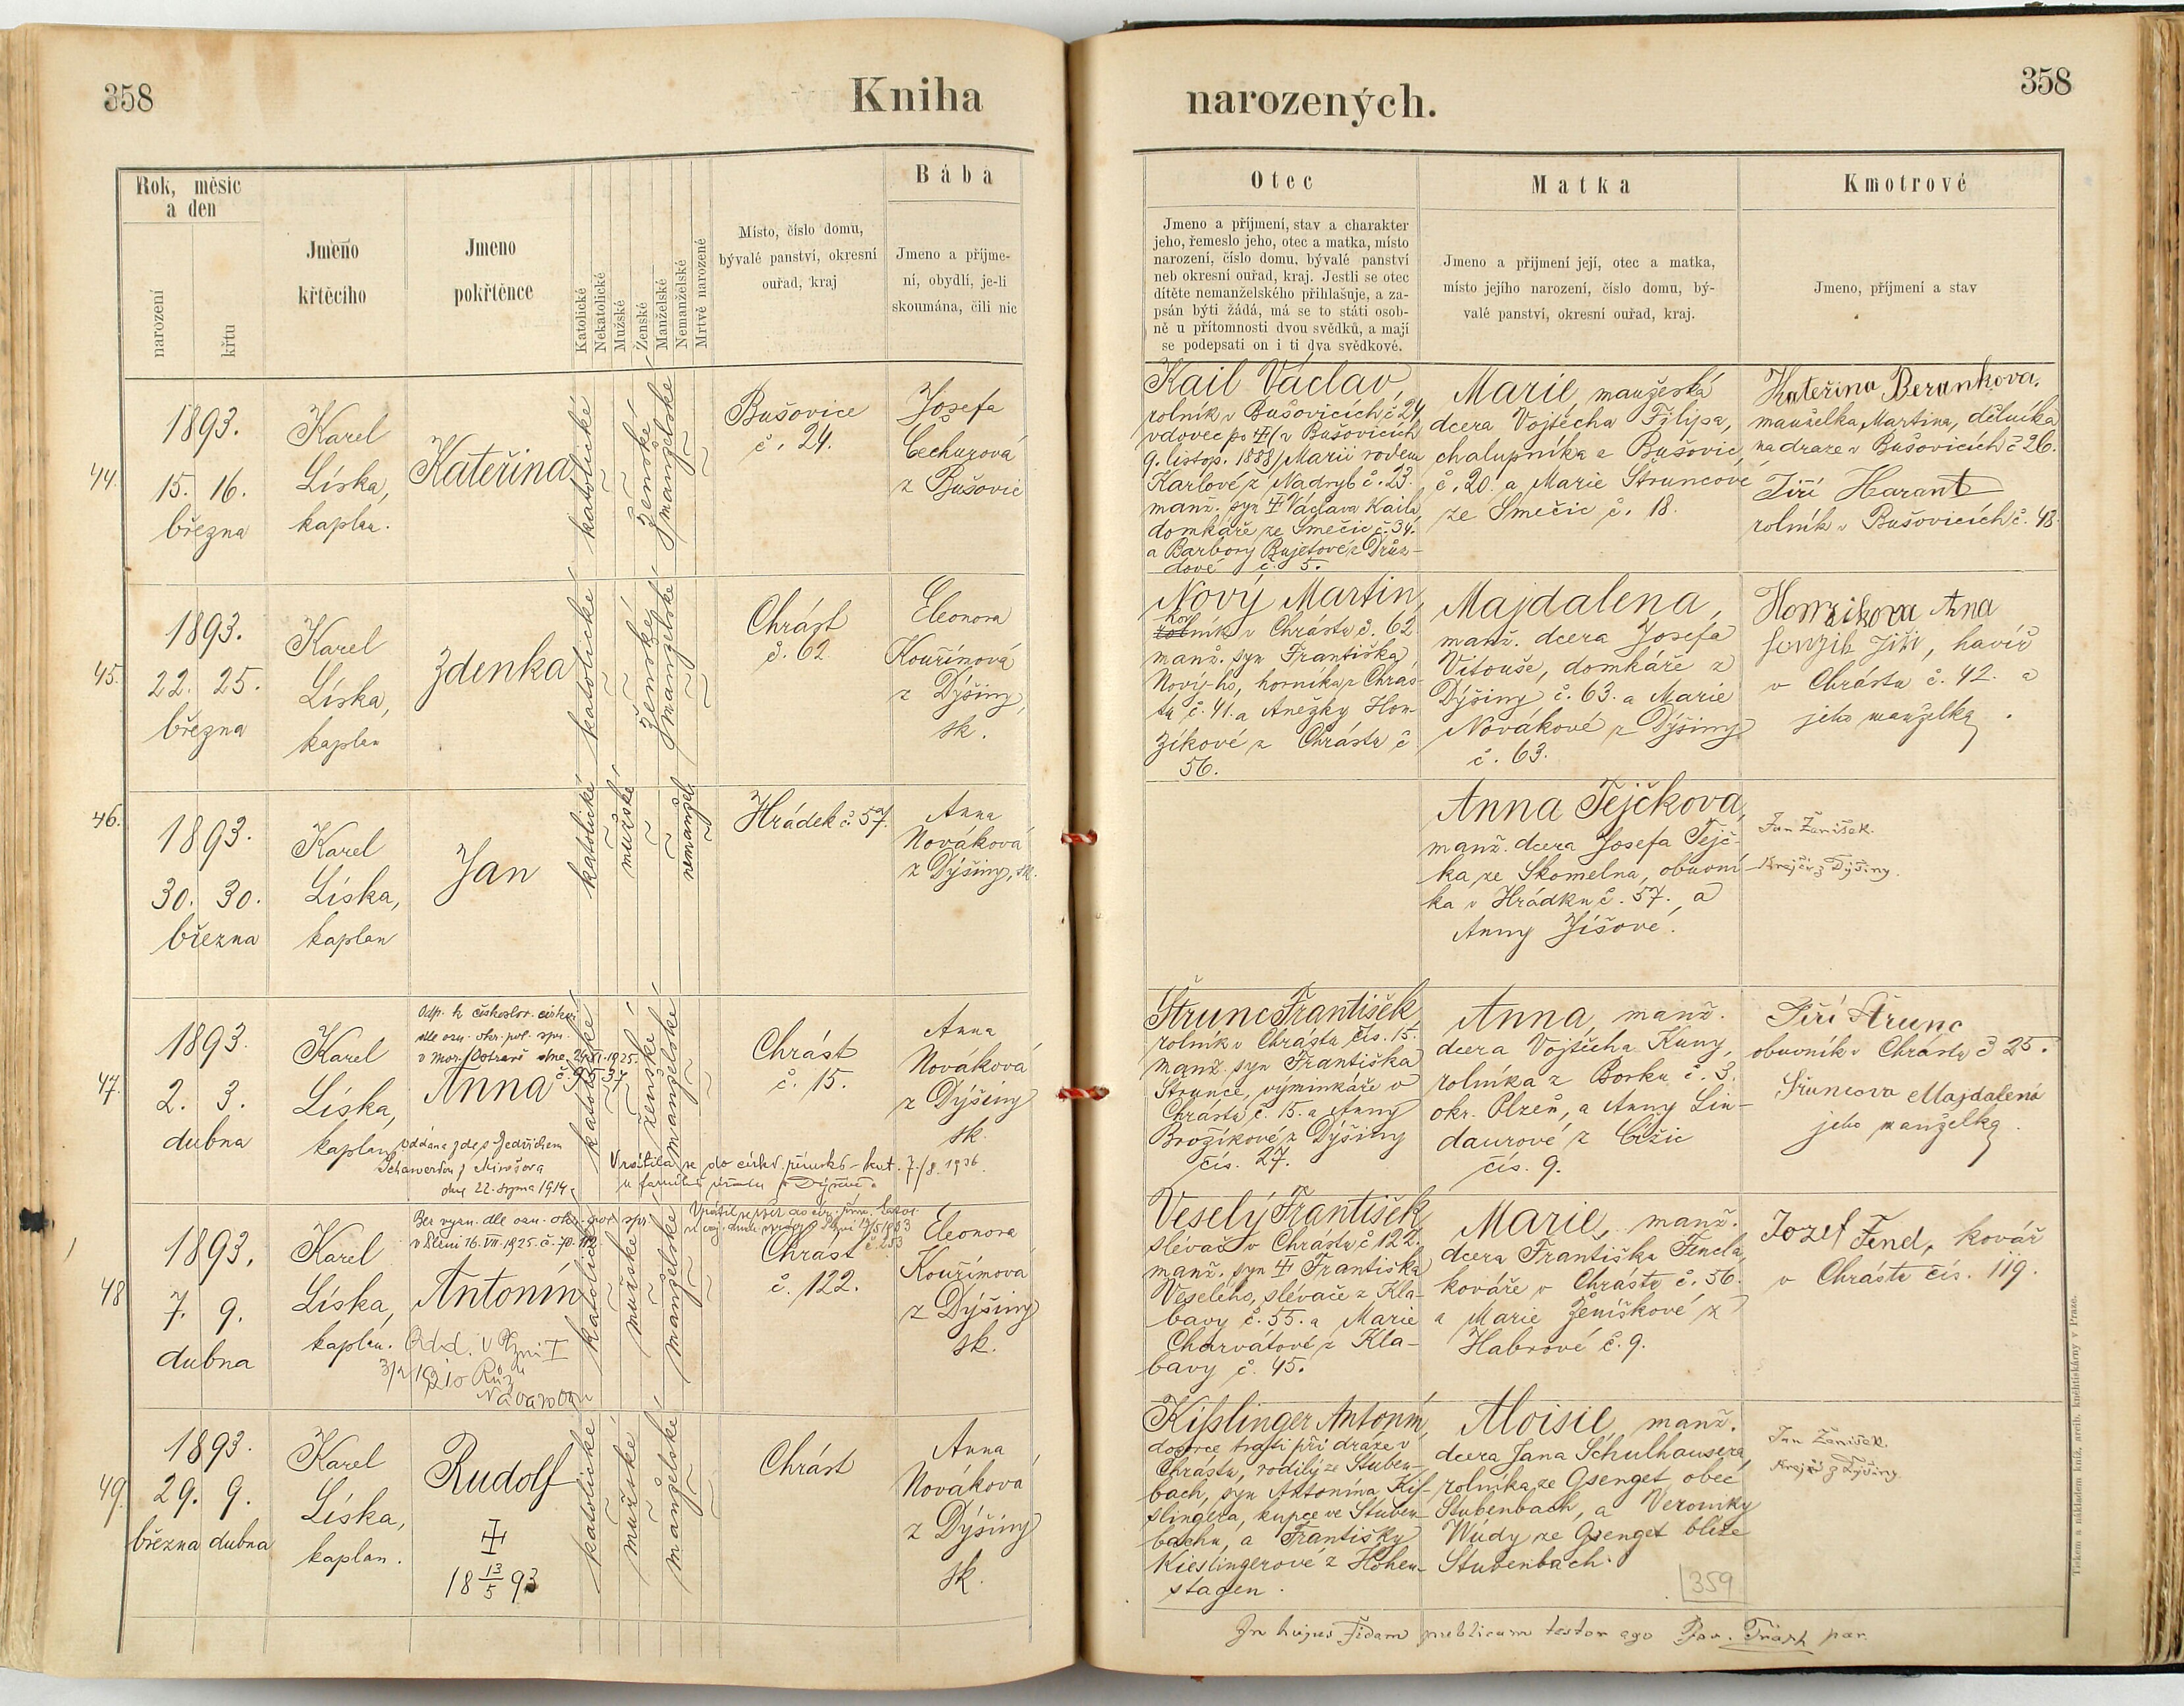 358
Kniha
narozených.
358
Rok, měsíc
a den
narození
křtu
Jmeno
křtěcího
Jmeno
pokřtěnce
Katolické
Nekatolické
Mužské
Ženské
Manželské
Nemanželské
Mrtvě narozené
Místo, číslo domu,
bývalé panství, okresní
ouřad, kraj
Bába
Jmeno a příjme-
ní, obydlí, je-li
skoumána, čili nic
Otec
Jmeno a příjmení, stav a charakter
jeho, řemeslo jeho, otec a matka, místo
narození, číslo domu, bývalé panství
neb okresní ouřad, kraj. Jestli se otec
dítěte nemanželského přihlašuje, a za-
psán býti žádá, má se to státi osob-
ně u přítomnosti dvou svědků, a mají
se podepsati on i ti dva svědkové.
Matka
Jmeno a příjmení její, otec a matka,
místo jejího narození, číslo domu, bý-
valé panství, okresní ouřad, kraj.
Kmotrové
Jmeno, příjmení a stav
44.
1893.
15. 16.
března
Karel
Líska,
kaplan.
Kateřina
katolické
ženské
manželské
Bušovice
č. 24.
Josefa
Cechurová
z Bušovic
Kail Václav,
rolník v Bušovicích č 24,
vdovec po † (v Bušovicích
9. listop. 1888) Marii rodem
Karlové z Nadryb č. 23.
manž. syn † Václava Kaila,
domkáře ze Smečic č. 34.
a Barbory Bujetové z Drůz-
dové č. 5.
Marie, manželská
dcera Vojtěcha Filipa,
chalupníka z Bušovic,
č. 20. a Marie Štruncové
ze Smečic č. 18.
Kateřina Berankova,
manželka Martina, dělníka
na draze v Bušovicích č 26.
Jiří Harant
rolník v Bušovicích č. 43.
45.
1893.
22. 25.
března
Karel
Líska,
kaplan
Zdenka
katolické
ženské
manželské
Chrást
č. 62
Eleonora
Kouřímová
z Dýšiny,
sk.
Nový Martin,
hor
rolník v Chrástu č. 62
manž. syn Františka
Nový-ho, horníka z Chrás-
tu č. 41. a Anežky Hon-
zíkové z Chrástu č
56.
Majdalena,
manž. dcera Josefa
Vitouše, domkáře z
Dýšiny č. 63. a Marie
Novákové z Dýšiny
č. 63.
Honzikova Anna
Jiži, havíř
v Chrástu č. 42. a
jeho manželka.
46.
1893.
30. 30.
března
Karel
Líska,
kaplan
Jan
katolické
mužské
nemanžel.
Hrádek č. 57.
Anna
Nováková
z Dýšiny, sk.
Anna Tejčkova,
manž. dcera Josefa Tejč-
ka ze Skomelna, obuvní-
ka v Hrádku č. 57. a
Anny Jíšové.
Jan Ženíšek.
Krejčí z Dýšiny.
47.
1893.
2. 3.
dubna
Karel
Líska,
kaplan
Odp. k českoslov. církvi
dle ozn. okr. pol. spr.
v Mor. Ostravě dne
Anna
Oddána zde s Jedřichem
z Mirošova
dne 22. srpna 1914.
katolické
ženské
manželské
Chrást
č. 15.
Anna
Nováková
z Dýšiny
sk.
Vrátila se do církv. římsko-kat. 7./8. 1936.
u farního úřadu v Dýšině.
Štrunc František
rolník v Chrástu čís. 15.
manž. syn Františka
Strunce, výminkáře v
Chrástu č. 15. a Anny
Brožíkové z Dýšiny
čís. 27.
Anna, manž.
dcera Vojtěcha Kuny,
rolníka z Borku č. 3.
okr. Plzeň, a Anny Lin-
daurové z Čížic
čís. 9.
Jiří Štrunc
obuvník v Chrástu č 25.
Štruncova Majdalena
jeho manželka.
48
1893.
7. 9.
dubna
Karel
Líska,
kaplan.
Bez vyzn. dle ozn. okr. pol. spr.
v Plzni 16. VII. 1925. č. 70.112
Antonín
Odd. v Plzni I
katolické
mužské
manželské
Chrást
č. 122.
Eleonora
Kouřímová
z Dýšiny
sk.
Veselý František
slévač v Chrástu č 122.
manž. syn † Františka
Veselého, slévače z Kla-
bavy č. 55. a Marie
Charvátové z Kla-
bavy č. 45.
Marie, manž.
dcera Františka Fencla,
kováře v Chrástu č. 56.
a Marie Ženíškové z
Habrové č. 9.
Jozef Fencl, kovář
v Chrástu čís. 119.
49.
1893.
29. 9.
března dubna
Karel
Líska,
kaplan.
Rudolf
†
18 13/5 93
katolické
mužské
manželské
Chrást
Anna
Nováková
z Dýšiny
sk.
Kißlinger Antonín,
dozorce trati při dráze v
Chrástu, rodilý ze Stuben-
bach, syn Antonína Kiß-
slingera, kupce ve Stuben-
bachu, a Františky
Kieslingerové z Hohen-
stagen.
Aloisie, manž.
dcera Jana Schulhausera,
rolníka ze Gsenget, obec
Stubenbach, a Veroniky
Wudy ze Gsenget blíže
Stubenbach.
Jan Ženíšek.
Krejčí z Dýšiny.
359
In hujus fidem publicam testor ego
Tiskem a nákladem kníž. arcib. knihtiskárny v Praze.